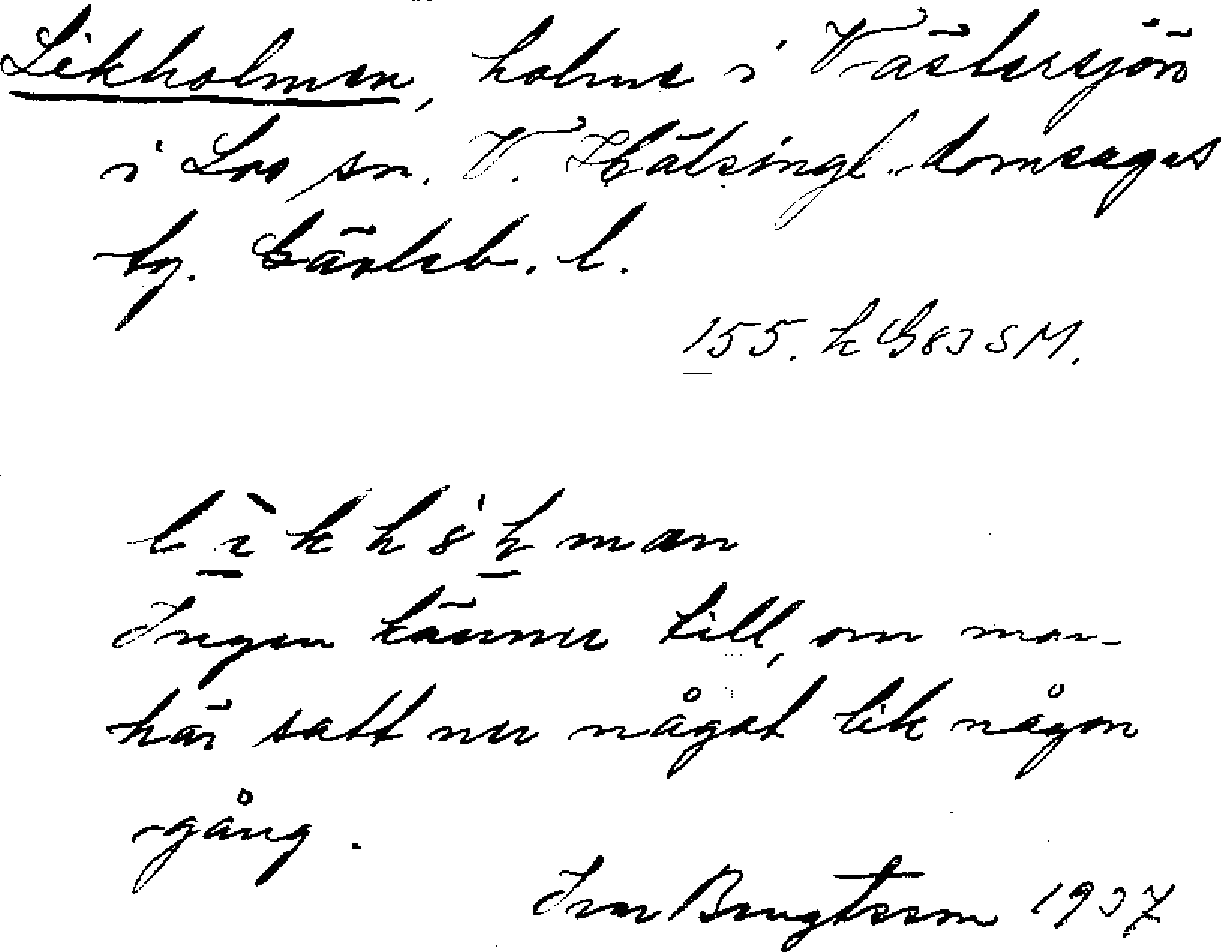 Likholmen, holme i Västersjön
i Los sn. V. Hälsingl. domsagas
tg. Gävleb. l.
155. k G83SM.
lìkhòlman
Ingen känner till, om man
här satt ner något lik någon
gång.
Ivar Bengtsson 1937